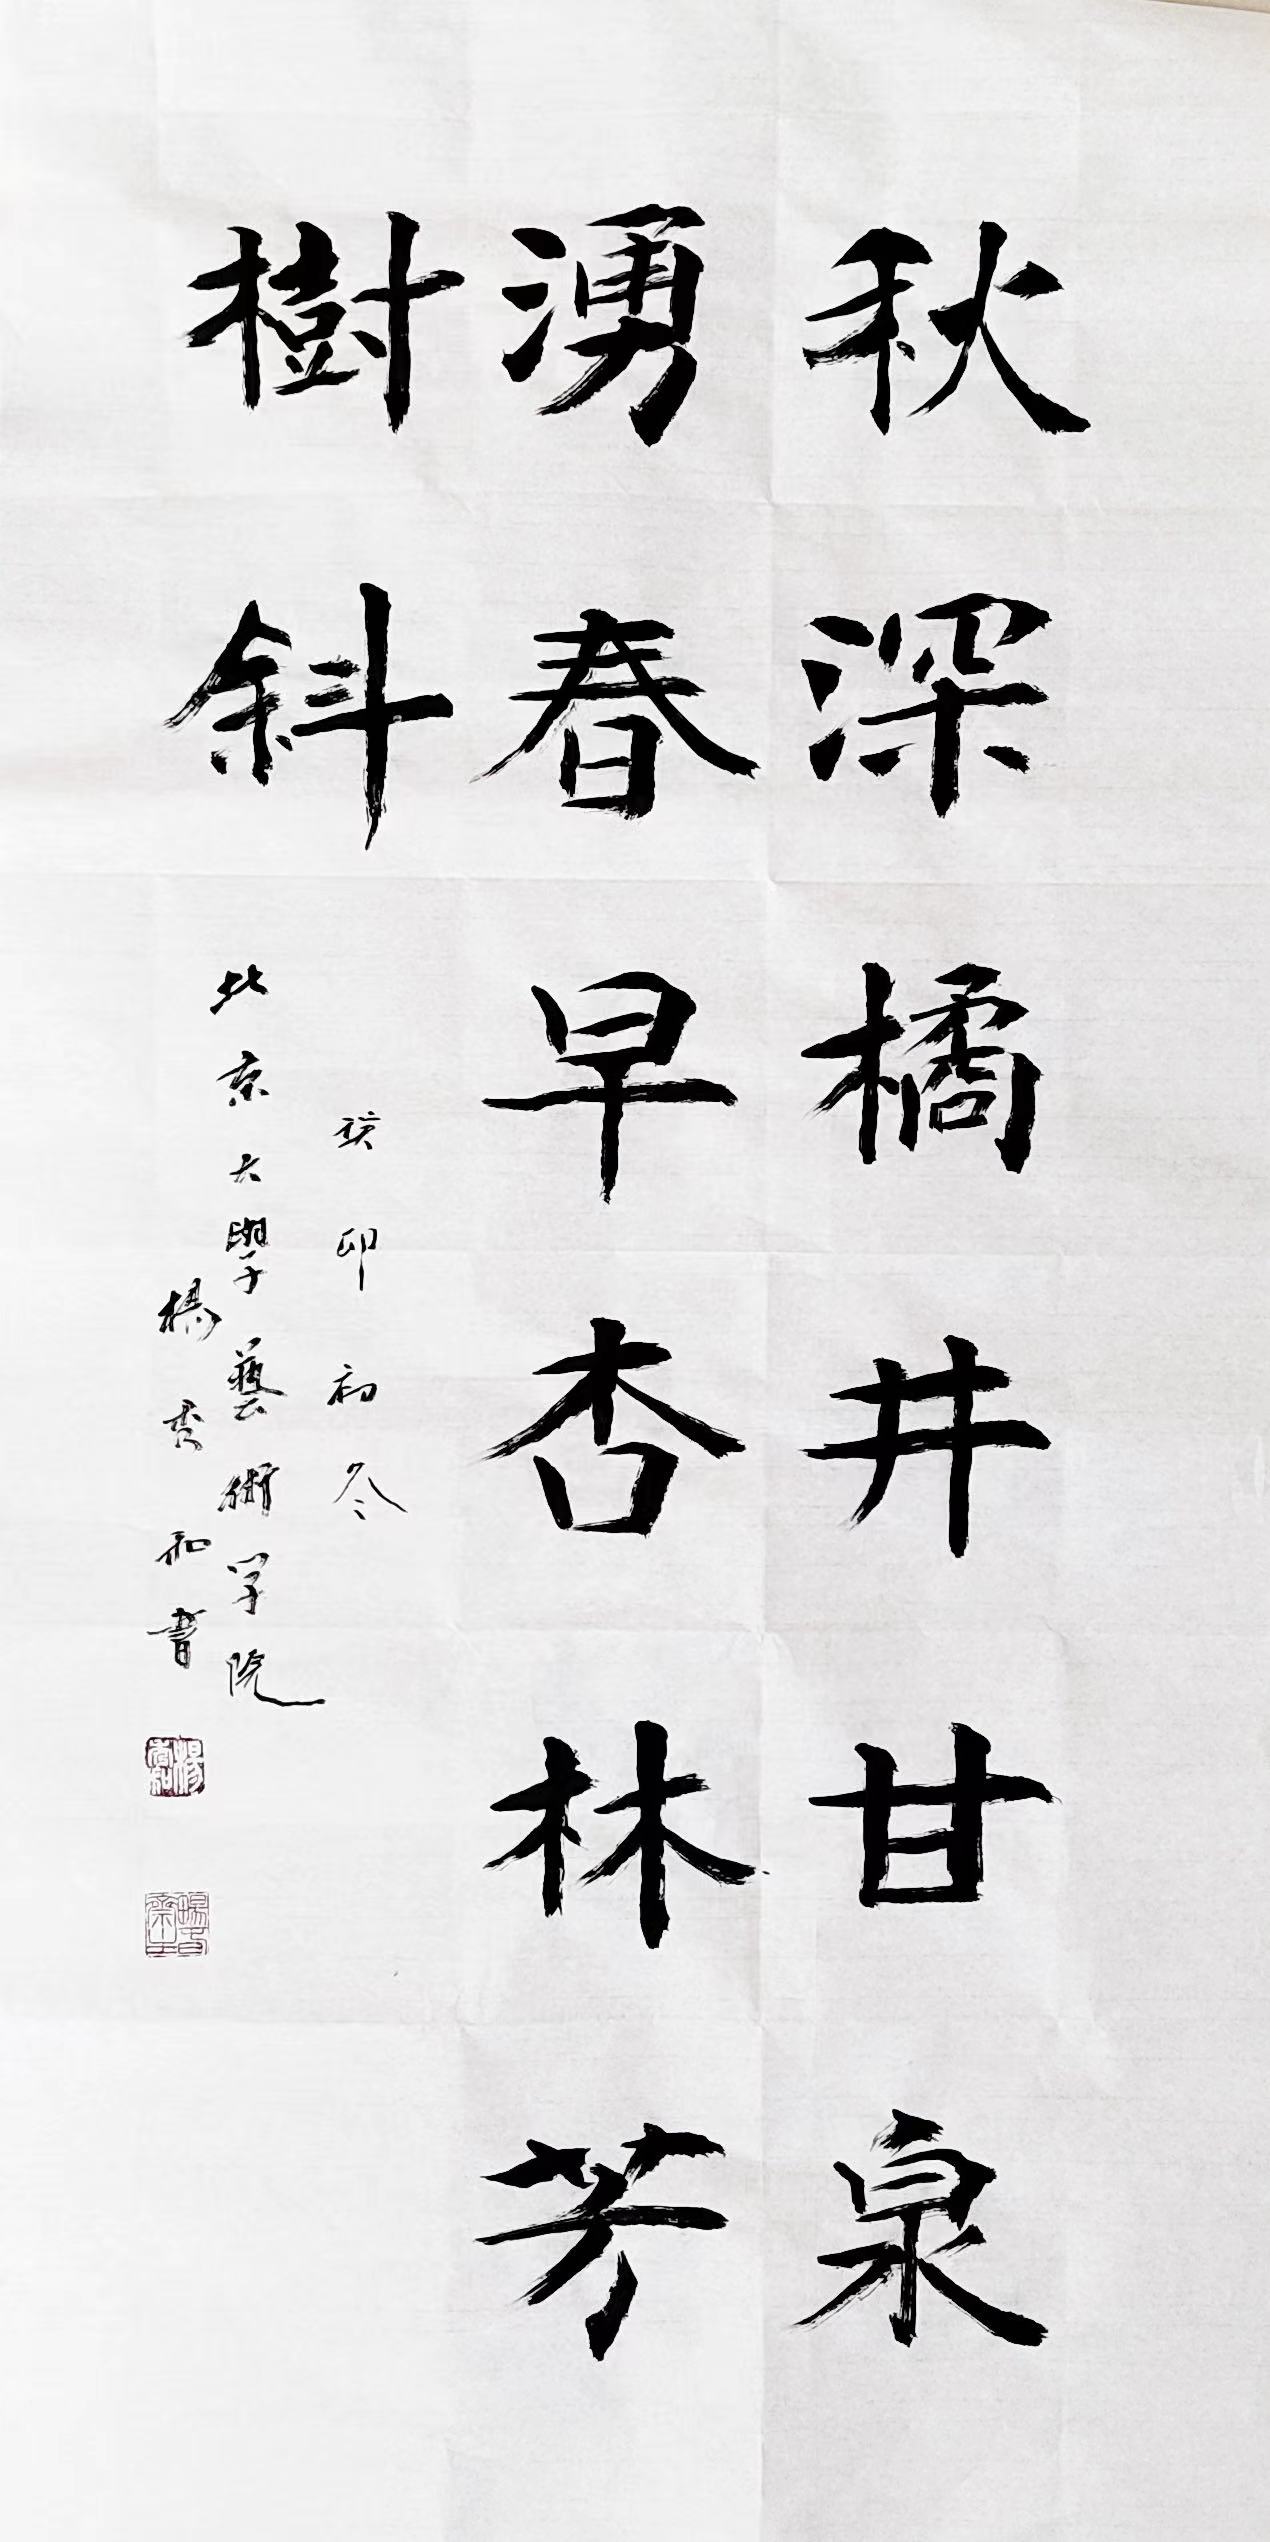 秋深橘井甘泉
湧春早杏林芳
樹斜
癸卯初冬
北京大學藝術学院
楊書和書